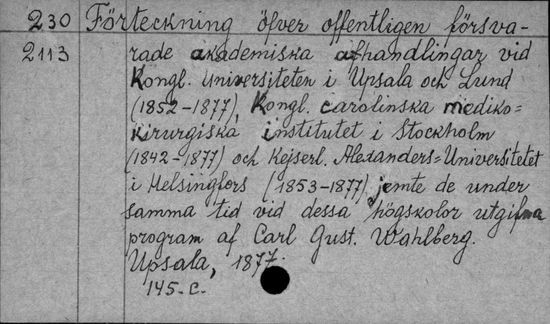 230 Förteckning öfver offentligen försva-
2113 rade akademiska afhandlingar vid
Kongl. Universiteten i Upsala och Lund
(1852-1877), Kongl. Carolinska mediko=
kirurgiska institutet i Stockholm
(1842-1877) och Kejserl. Alexanders=Universitetet
i Helsingfors (1853-1877) jemte de under
samma tid vid dessa högskolor utgifna
program af Carl Gust. Wahlberg.
Upsala, 1877.
145.c.